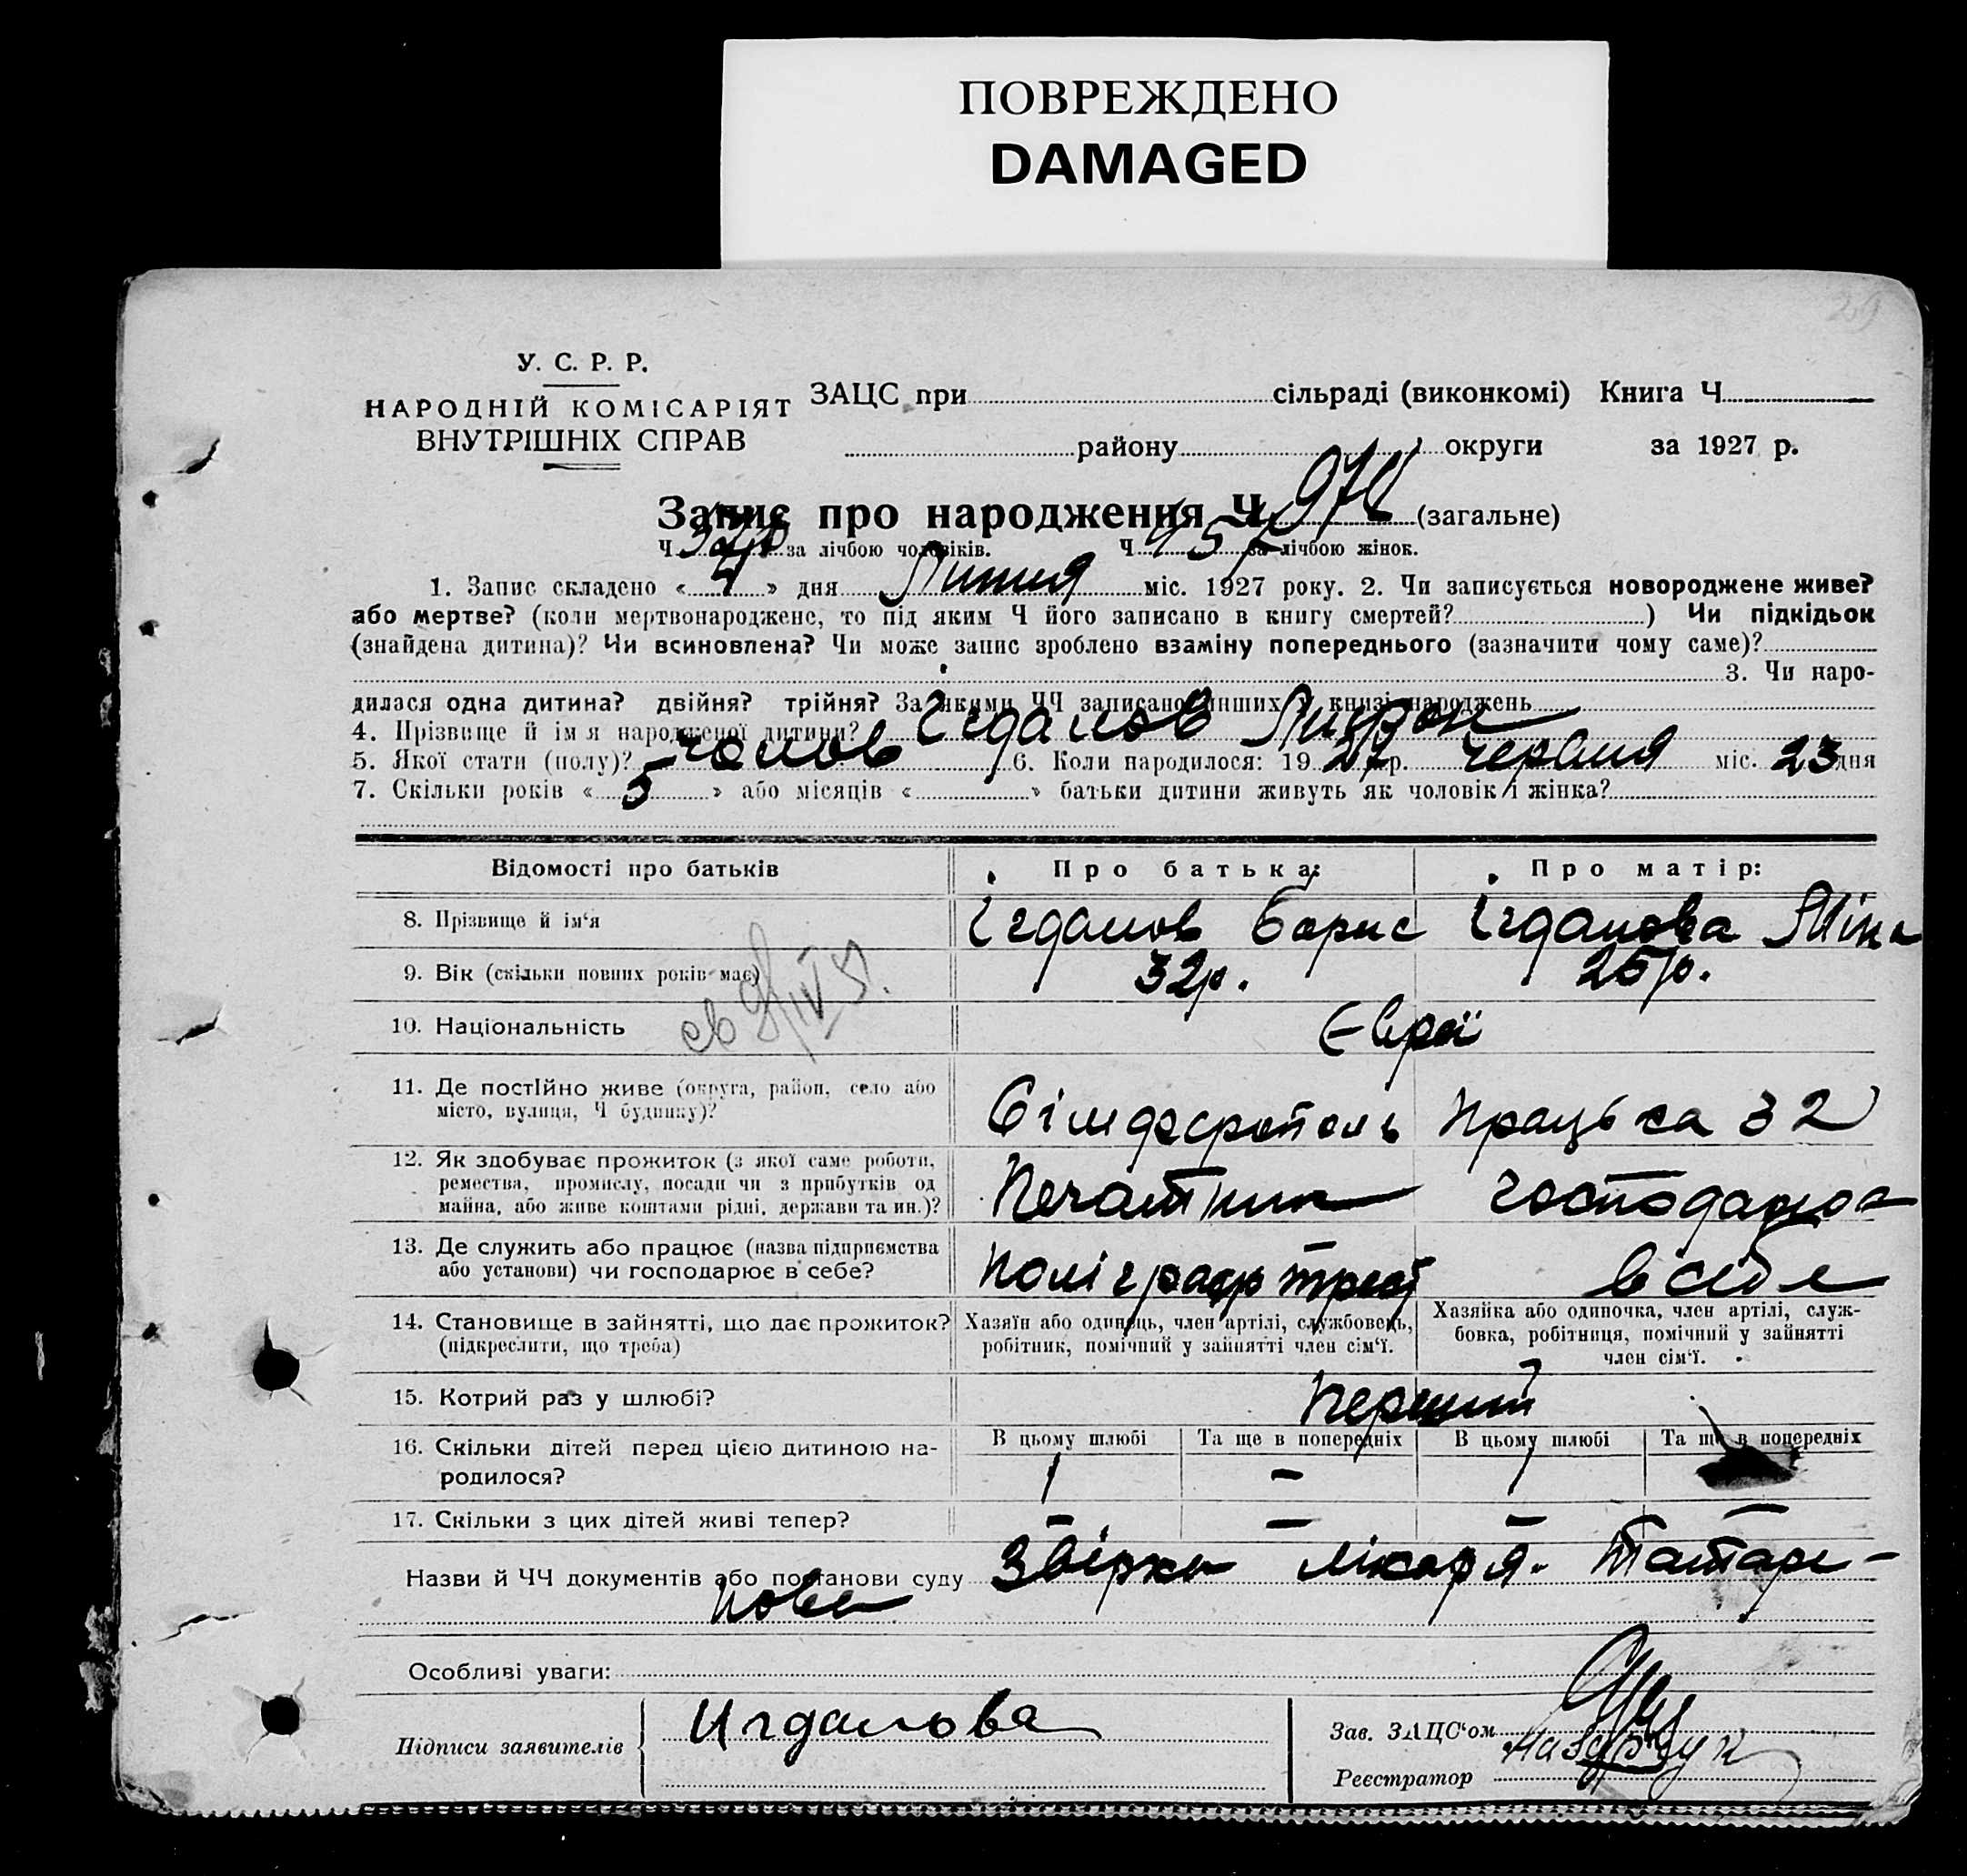 ПОВРЕЖДЕНО
DAMAGED
У. С. Р. Р.
НАРОДНІЙ КОМІСАРІЯТ
ВНУТРІШНІХ СПРАВ
ЗАЦС при сільраді (виконкомі) Книга Ч
району округи за 1927 р.
Запис про народження Ч (загальне)
Ч за лічбою чоловіків. Ч за лічбою жінок.
1. Запис складено « 4 » дня Липня міс. 1927 року. 2. Чи записується новороджене живе?
або мертве? (коли мертвонароджене, то під яким Ч його записано в книгу смертей? ) Чи підкідьок
(знайдена дитина)? Чи всиновлена? Чи може запис зроблено взаміну попереднього (зазначити чому саме)?
3. Чи наро-
дилася одна дитина? двійня? трійня? За якими ЧЧ записано инших у книзі народжень
4. Прізвище й ім я народженої дитини? Ігдалов
5. Якої стати (полу)? чолов 6. Коли народилося: 19 27 р. червня міс. 23 дня
7. Скільки років « 5 » або місяців « » батьки дитини живуть як чоловік і жінка?
Відомості про батьків
Про батька:
Про матір:
8. Прізвище й ім'я
Ігдалов Борис
Ігдалова Міна
9. Вік (скільки повних років має)
32р.
25р.
10. Національність
Євреї
11. Де постійно живе (округа, район, село або
місто, вулиця, Ч будинку)?
Сімферополь Праці 32
12. Як здобуває прожиток (з якої саме роботи,
ремества, промислу, посади чи з прибутків од
майна, або живе коштами рідні, держави та ин.)?
Печатник
господарює
13. Де служить або працює (назва підприємства
або установи) чи господарює в себе?
Поліграф трест
в себе
14. Становище в зайнятті, що дає прожиток?
(підкреслити, що треба)
Хазяїн або одинець, член артілі, службовець,
робітник, помічний у зайнятті член сім'ї.
Хазяйка або одиночка, член артілі, служ-
бовка, робітниця, помічний у зайнятті
член сім'ї.
15. Котрий раз у шлюбі?
Перший
16. Скільки дітей перед цією дитиною на-
родилося?
В цьому шлюбі
Та ще в попередніх
В цьому шлюбі
Та ще в попередніх
1 - 1
17. Скільки з цих дітей живі тепер?
- - - -
Назви й ЧЧ документів або постанови суду лікаря. Татари-
нова
Особливі уваги:
Підписи заявителів
Игдалова
Зав. ЗАЦС'ом
Реєстратор